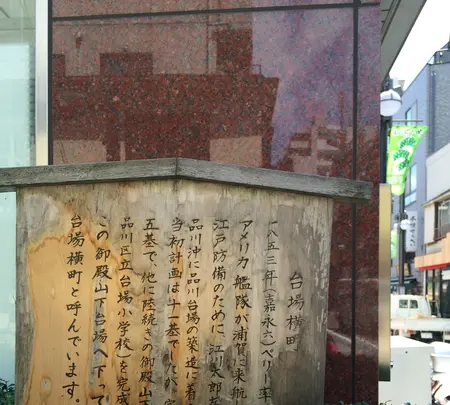 台場横町
一八五三年(嘉永六)ペリー率
アメリカ艦隊が浦賀に来航
江戸防備のために、江川太郎
品川沖に品川台場の築造に着
当初計画は十一基でしたが、
五基で、他に陸続きの御殿山下
品川区立台場小学校)を完成
この御殿山下台場へ下って
台場横町と呼んでいます。